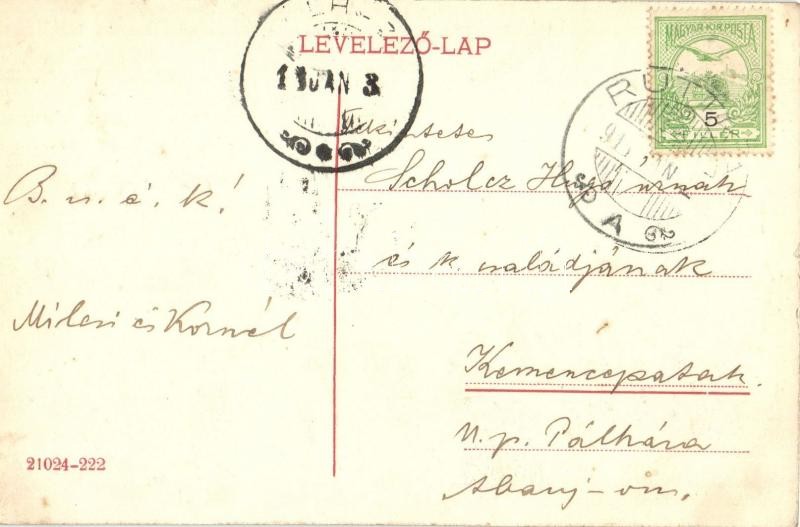 LEVELEZŐ-LAP
MAGYAR·KIR·POSTA
5
FILLÉR
11 JAN 3
RUTT
A
B. u. é. k!
Milesi és Kornél
Tekintetes
Scholcz Hugó úrnak
és k. családjának
Kemenczepatak.
U. p. Pálháza
Abauj-vm.
21024-222